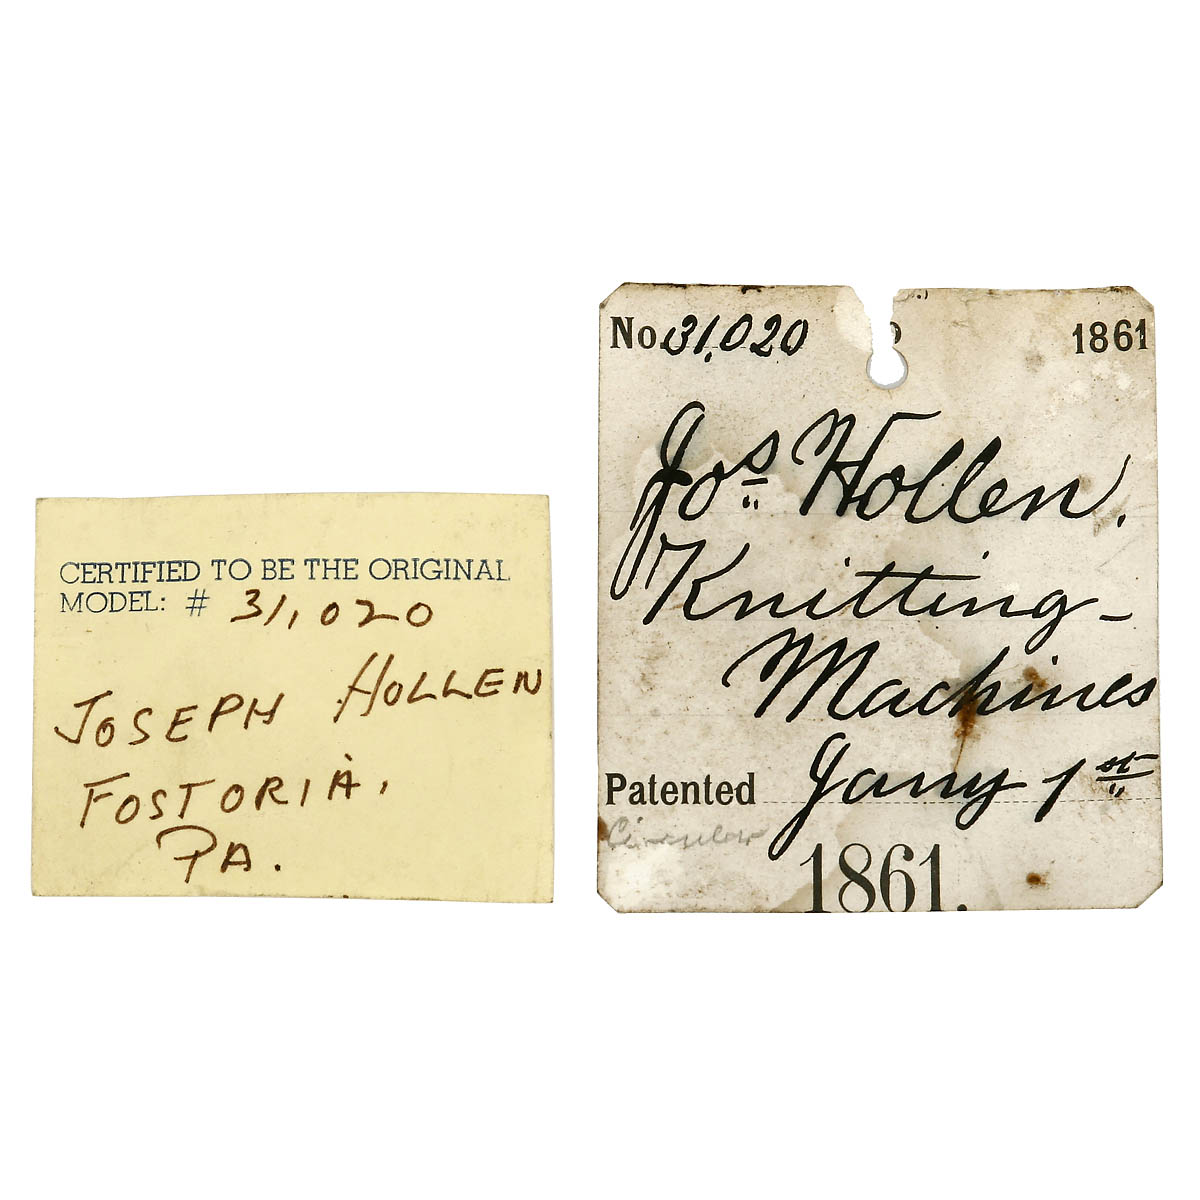 CERTIFIED TO BE THE ORIGINAL
MODEL: # 31,020
JOSEPH HOLLEN
FOSTORIA,
PA.
No. 31,020 1861
Jos Hollen.
Knitting-
Machines
Patented Jany 1st
Circular
1861.